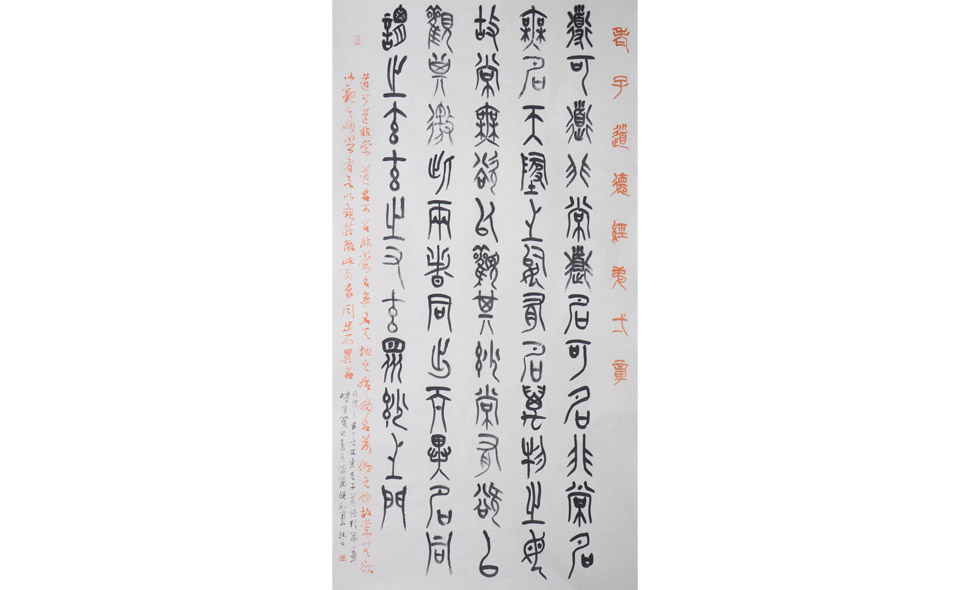 老子道德經弟弌章
道可道非常道名可名非常名
無名天地之始有名萬物之母
故常無欲以觀其妙常有欲以
觀其徼此兩者同出而異名同
謂之玄玄之又玄眾妙之門
道可道非常道名可名非常名無名天地之始有名萬物之母故常無欲
以觀其妙常有欲以觀其徼此兩者同出而異名